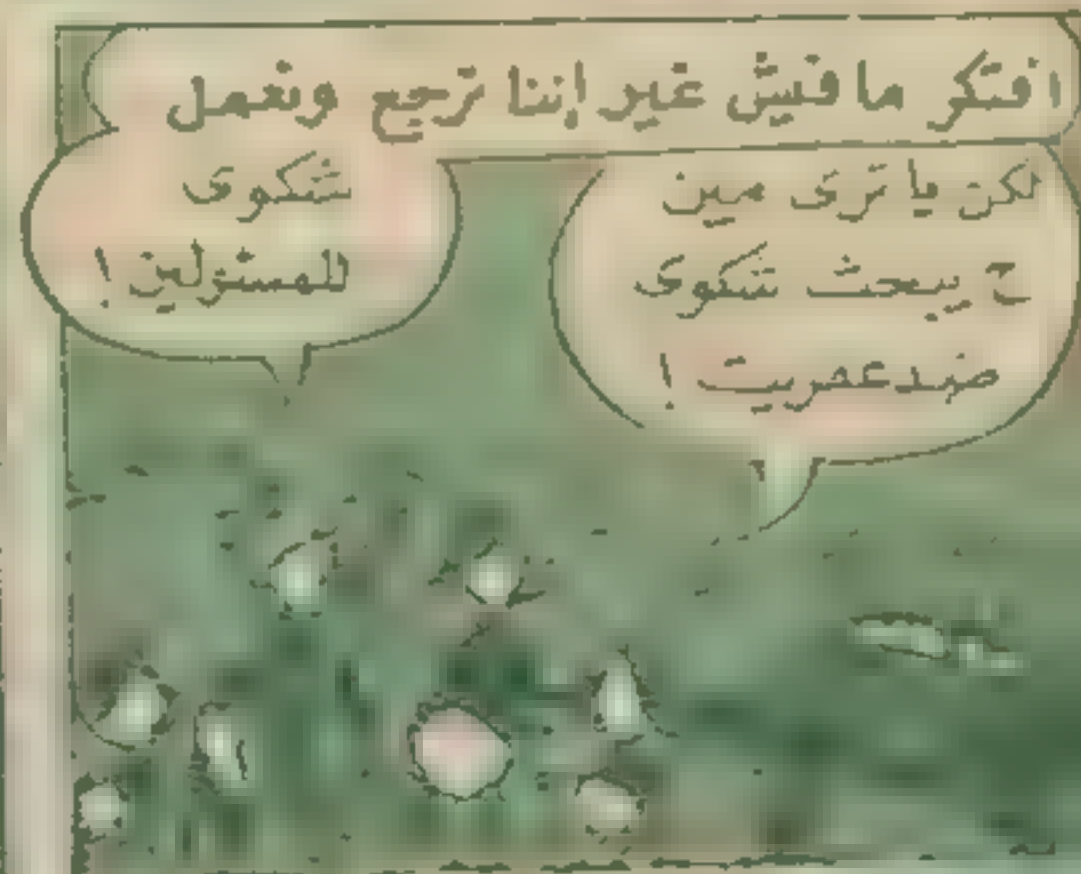 افتكر مافيش غير إننا نرجع ونعمل
شكوى
للمسئولين !
لكن يا ترى مين
ح يبحث شكوى
ضد عفريت !